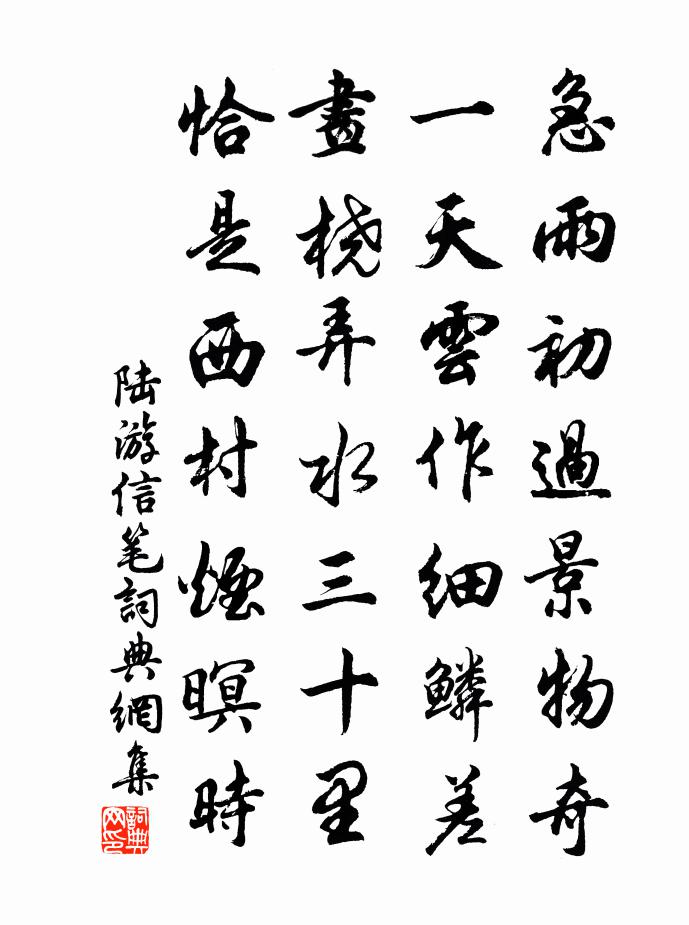 急雨初過景物奇
一天雲作細鱗差
畫橈弄水三十里
恰是西村煙暝時
陆游信笔詞典網集
詞典网印